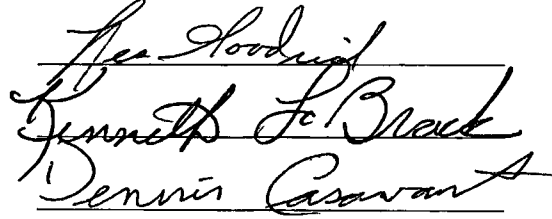 Goodrich
Kenneth Lc Brack
Dennis Casavant